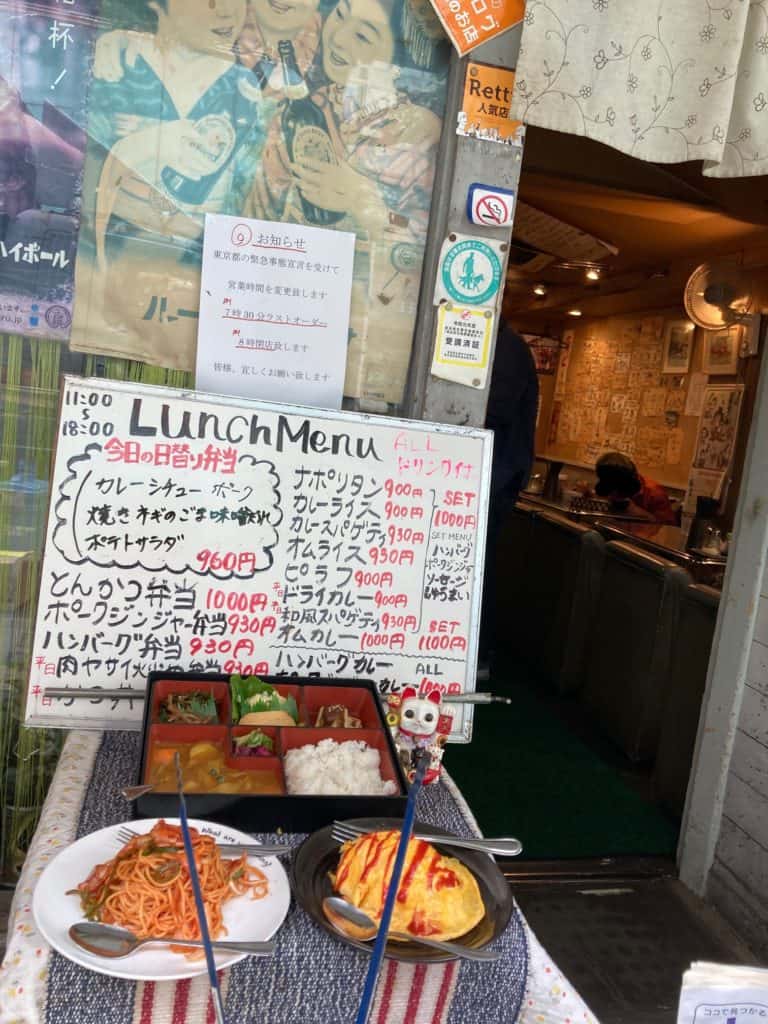 杯!
ハイボール
ログ
のお店
Retty
人気店
お知らせ
東京都の緊急事態宣言を受けて
営業時間を変更致します
PM
7時30分ラストオーダー
PM
8時閉店致します
皆様、宜しくお願い致します
受講済証
11:00
〜
18:00
Lunch Menu
ALL
ドリンク付
今日の日替り弁当
カレーシチュー ポーク
焼きネギのごま味噌だれ
ポテトサラダ
960円
とんかつ弁当 1000円
ポークジンジャー弁当 930円
ハンバーグ弁当 930円
平日 肉ヤサイ 弁当 930円
平日
ナポリタン 900円
カレーライス 900円
カレースパゲティ 930円
オムライス 930円
ピラフ 900円
平日 ドライカレー 900円
和風スパゲティ 930円
オムカレー 1000円
SET
1000円
SET MENU
ハンバーグ
ポークジンジャー
ソーセージ
しゅうまい
SET
1100円
ハンバーグカレー
ALL
カレー 1000円
What are
ココで見つかる